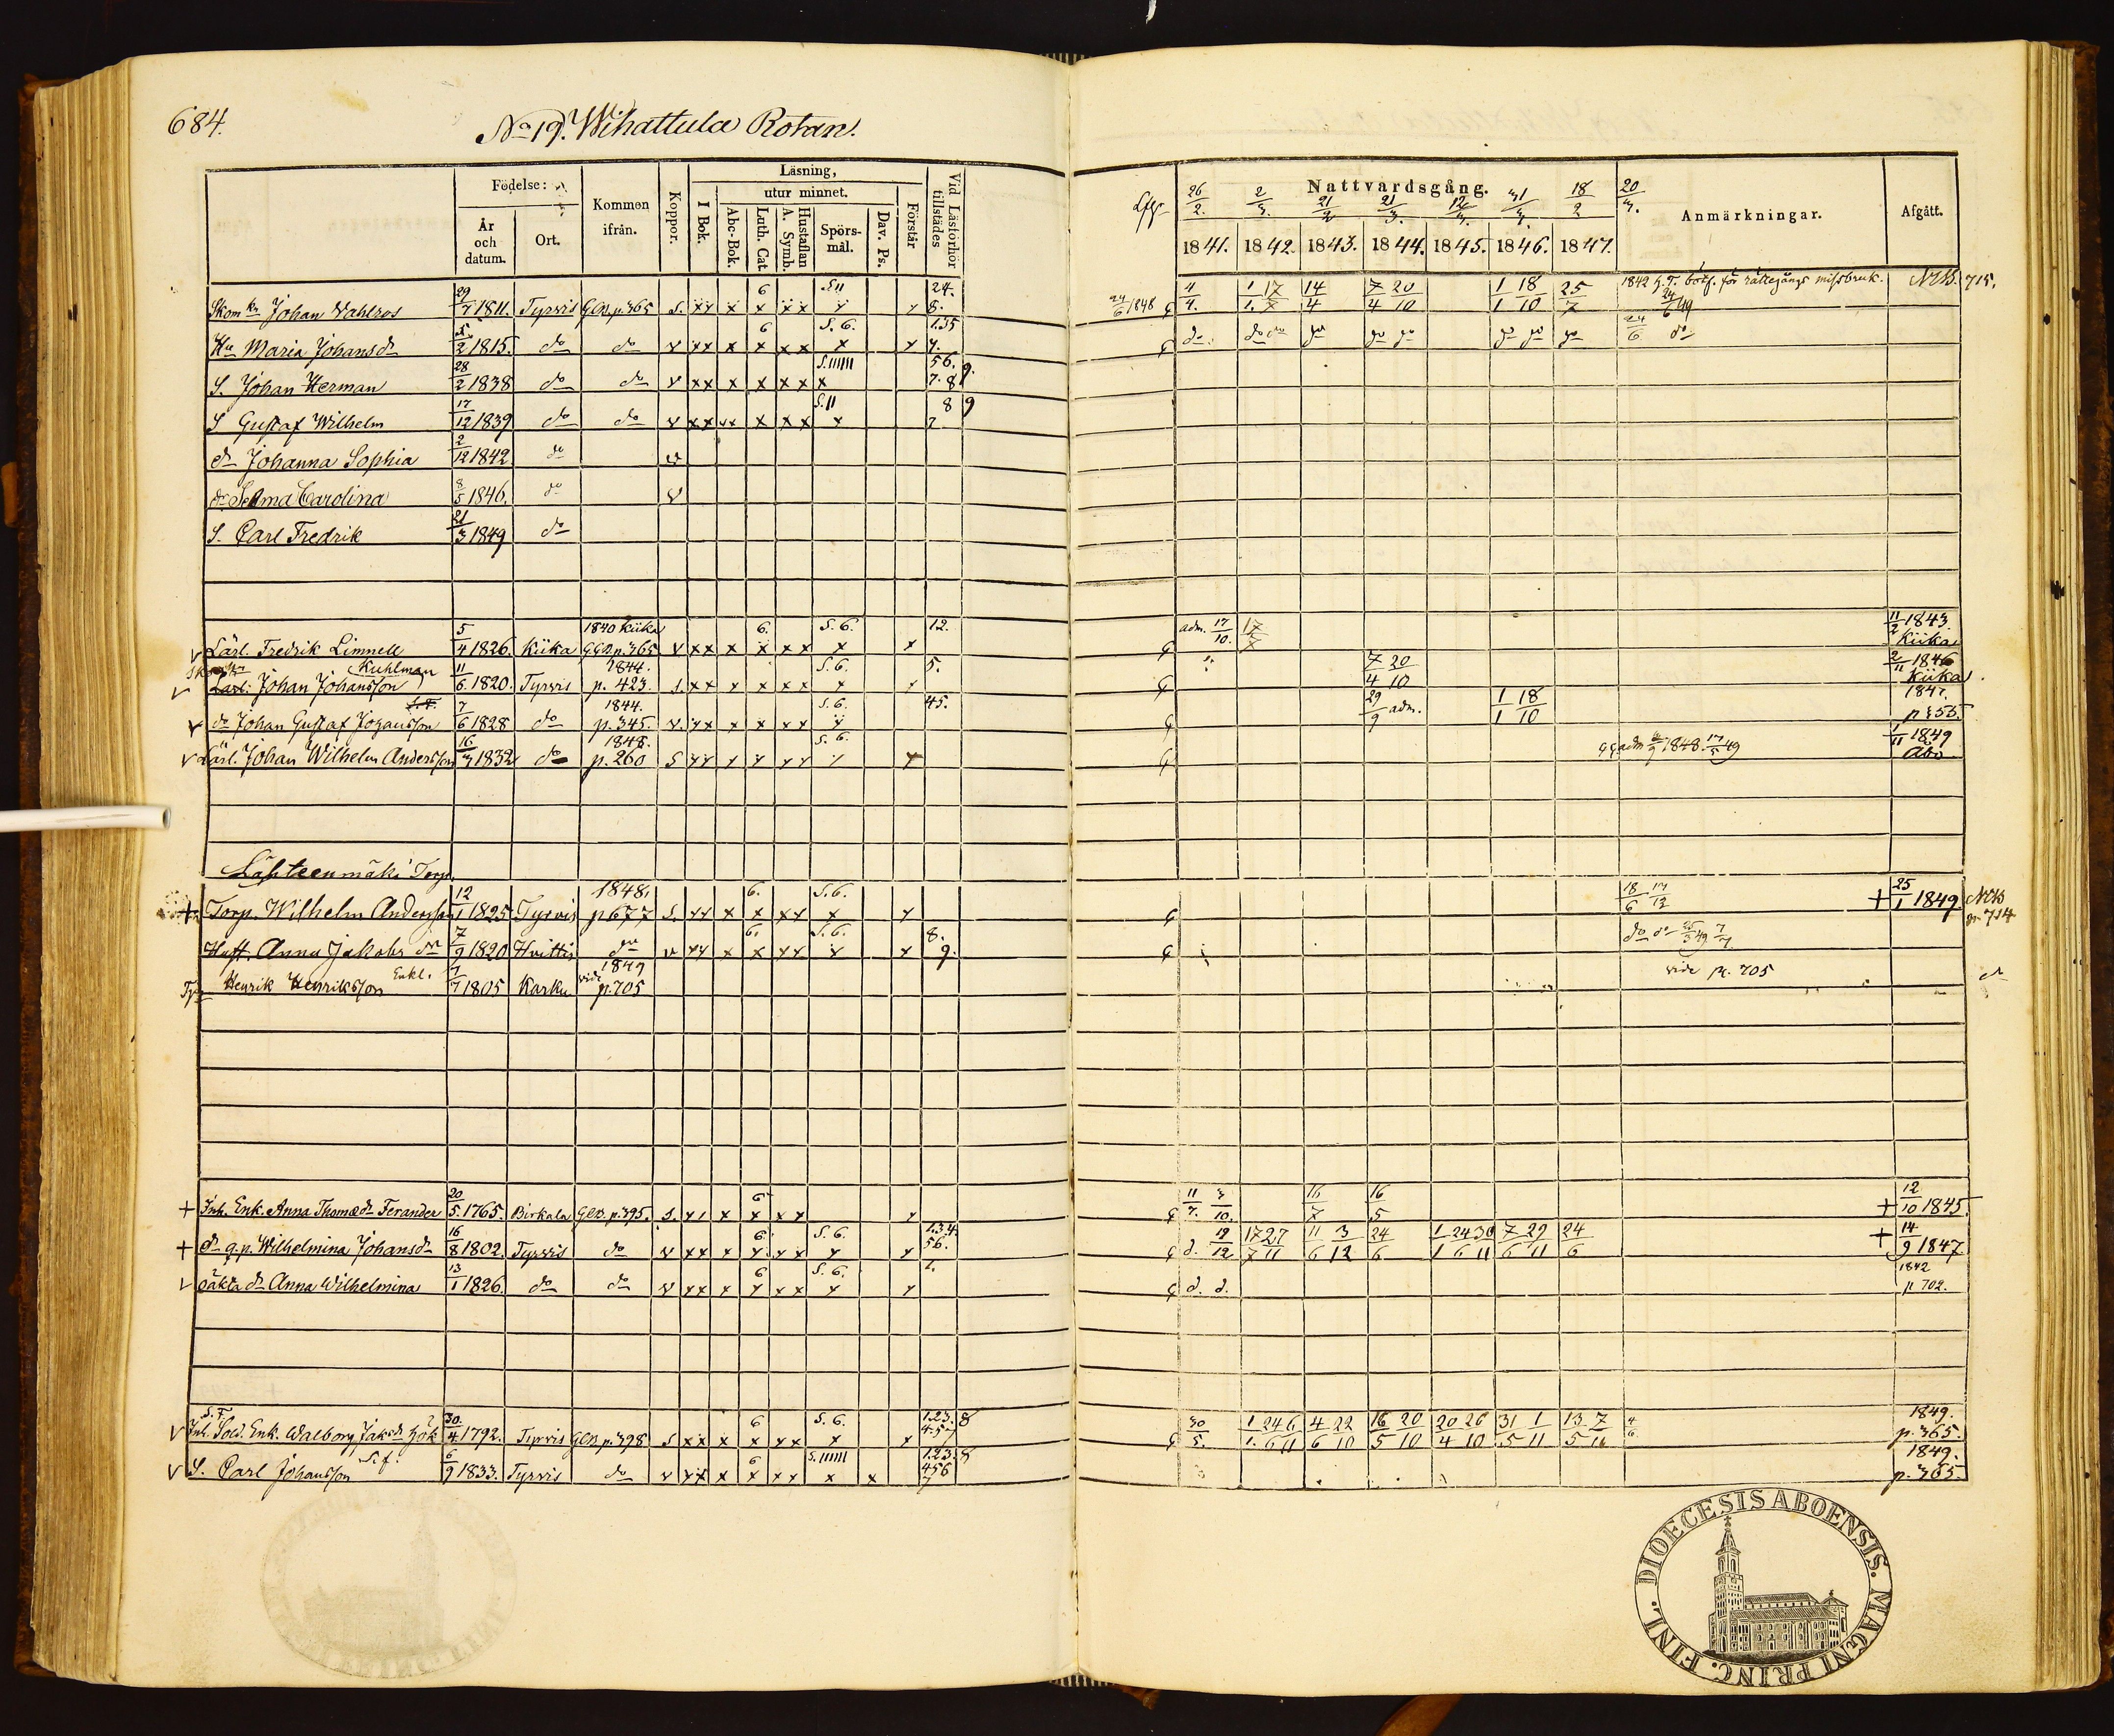 684.
No 19. Wihattula Rotan.
Födelse:
År och datum.
Ort.
Kommen ifrån.
Koppor.
Läsning,
I Bok.
utur minnet.
Abc-Bok.
Luth. Cat.
Hustaflan A. Symb.
Spörs-mål.
Dav. Ps.
Förstår
Vid Läsförhör tillstädes
Nattvardsgång.
26/2. 1841.
1842.
21/2 1843.
21/3. 1844.
12/4. 1845.
1846.
18/2 1847.
Anmärkningar.
Afgått.
Skom kr Johan Vahlros 29/7 1811. Tyrvis GCB. p. 365 S. 6 S 11 24. 8. 24/6 1848 1 17 14/4 7/4 20/10 1/1 18/10 25/7 1842 h. T. bötf. för rättegångs missbruk. 24/6 49 NKB. 715.
Hu Maria Johansdr 5/2 1815. do do v xx x x xx x 6 S. 6. 1.35 7. do do do do do do do do do 24/6 do
S. Johan Herman 28/2 1838 do do v xx x x xx x S. 11111 56. 7. 8 9.
S Gustaf Wilhelm 17/12 1839 do do v xx xx x xx x S. 11 8 9 7
dr Johanna Sophia 2/12 1842 do v
dr Selma Carolina 8/5 1846. do v
S. Carl Fredrik 21/3 1849 do
v Lärl. Fredrik Limnell 5/4 1826. Kiika 1840 Kiika GCB p. 365 v xx x x xx x x 6. S. 6. 12. adm. 17/10. 17/7 11/2 1843. Kiika
v Lärl. Johan Johansson Kuhlman 11/6. 1820. Tyrvis 1844. p. 423. S. 6. 5. 7/4 20/10 2/11 1846 Kiika
v do Johan Gustaf Johansson 7/6 1828 do 1844. p. 345. v. S. 6. 45. 29/9 adm. 1/1 18/10 1847. p 355.
v Lärl. Johan Wilhelm Andersson 16/3 1832 do 1848. p. 260 S S. 6. adm 1848. 17/5 49 1/11 1849 Åbo.
Lähteenmäki Torp.
+ Torp. Wilhelm Andersson 12/1 1825 Tyrvis 1848. p 677 S. 6. S. 6. 18/6 17/12 + 25/1 1849 NKB p. 714
Hust. Anna Jakobs dr 7/9 1820 Hvittis do v 6. S. 6. 8. 9. do do 25/3 49 7/7
Henrik Henriksson Enkl. 7/7 1805 Karku 1849 vide p. 705 vide p. 705
+ Inh. Enk. Anna Thomædr Ferander 20/5. 1765. Birkala GCB. p. 395. S. 6 11/7. 3/10. 16/7 16/5 + 12/10 1845.
+ dr q.p. Wilhelmina Johansdr 16/8 1802. Tyrvis do v 6 S. 6. 1.3.4. 56. d. 12 17/7 27/11 11/6 3/12 24/6 1/1 24/6 30/11 7/6 29/11 24/6 + 14/9 1847
v oäkta dr Anna Wilhelmina 13/1 1826. do do v 6 S. 6. 1. d. d. 1842 p 702.
v Inh. Sold. Enk. Walborg Jakdr Hök 30./4. 1792. Tyrvis GCB. p. 398 S 6 S. 6. 1.2.3. 8 4.5.7 30/5. 1/1. 24/6 6/11 4/6 22/10 16/5 20/10 20/4 26/10 31/5 1/11 13/5 7/11 4/6 1849. p. 365.
v S. Carl Johansson S. f. 6/9 1833. Tyrvis do v 6 S. 11111 1.2.3. 8 456 7 1849. p. 365.
DIOECESIS ABOENSIS. MAGNI PRINC. FINL.